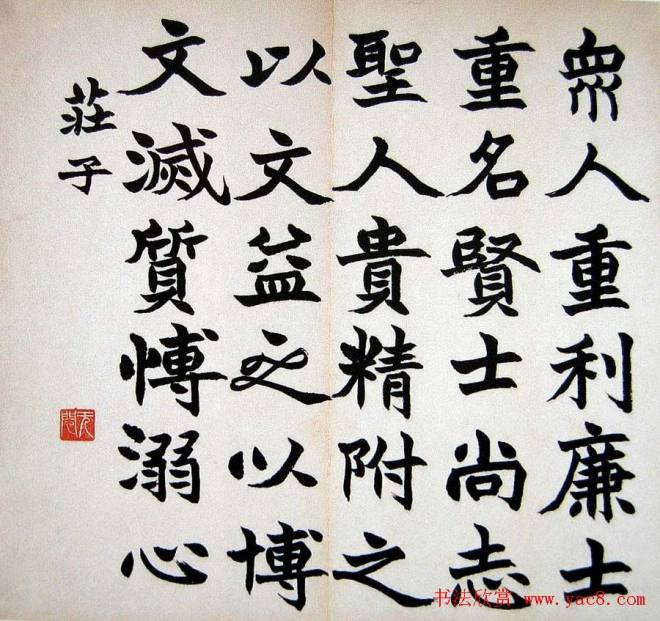 衆人重利廉士
重名賢士尚志
聖人貴精附之
以文益之以博
文滅質愽溺心
莊子
书法欣赏 www.yac8.com